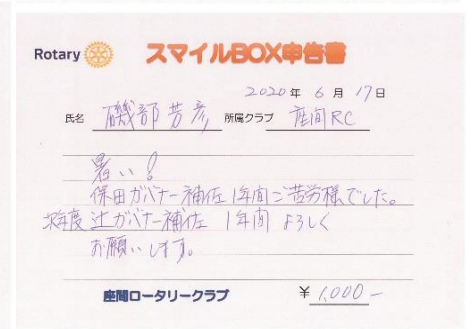 Rotary スマイルBOX申告書
2020年 6月 17日
氏名 磯部芳彦 所属クラブ 座間RC
暑い!
保田ガバナー補佐1年間ご苦労様でした。
次年度 辻ガバナー補佐 1年間 よろしく
お願いします。
座間ロータリークラブ ¥1,000-